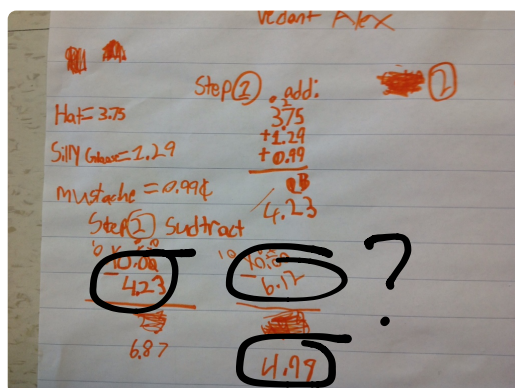 Vedant Alex
Step 1 add: 2
Hat= 3.75
3.75
+1.29
+0.99
Silly Glasses=1.29
mustache = 0.99¢
4.23
Step 2 Subtract
10.00
- 4.23
6.87
10.00
- 6.12
4.79
?